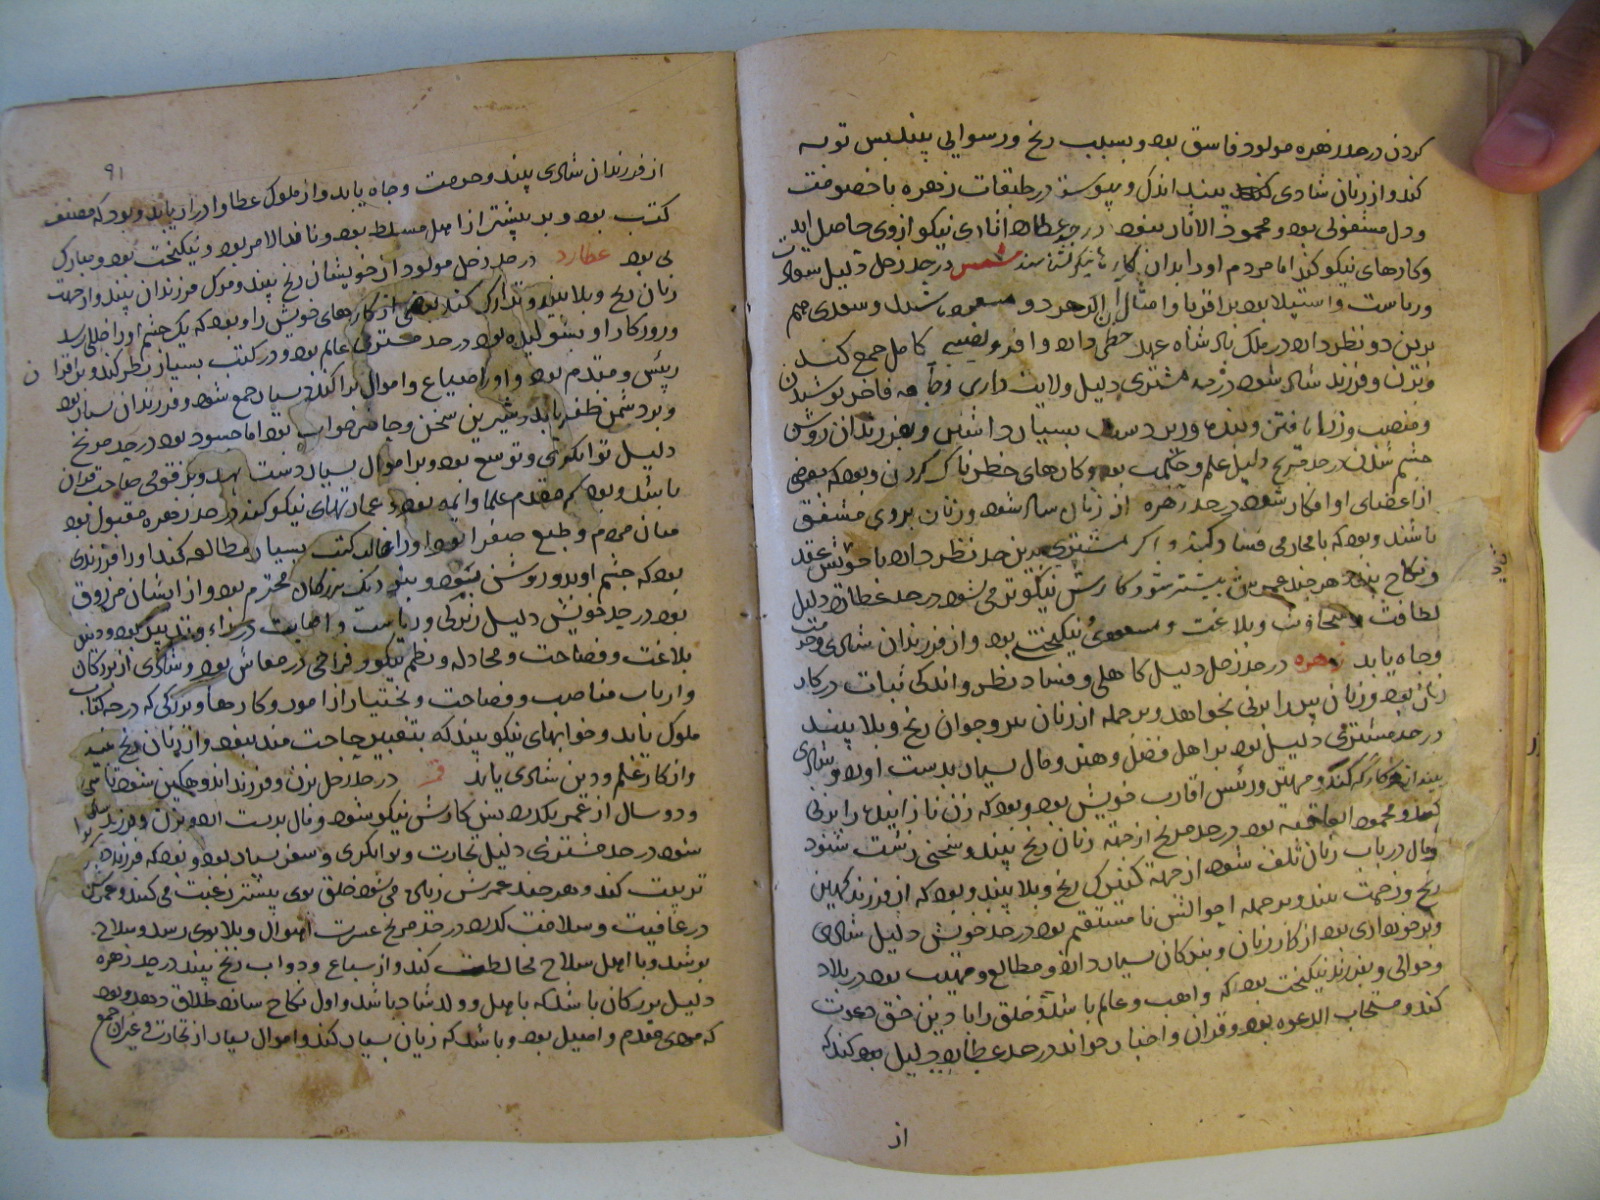 کردن در حد زهره مولود فاسق بود و بسبب رنج و رسوایی بیند پس توبه
کند و از زنان شادی بیند اندک و پیوسته در طبقات زهره با خصومت
و دل مشغولی بود و محمود الآثار نبود در حد عطارد آثاری نیکو از وی حاصل آید
و کارهای نیکو کند اما مردم او را بدان شمس در حد زحل دلیل
و ریاست و استیلا بود بر اقربا و امثال
برین حد نظر دارد در ملک پادشاه عهد حظی دارد وافر و نصیبی کامل جمع کند
و بزن و فرزند شاد شود در حد مشتری دلیل ولایت داری و جامه فاخر پوشیدن
و منصب وزرا یافتن و بنده و پرده بسیار داشتن و بفرزندان روشن
چشم شدن در حد مریخ دلیل علم و حکمت بود و کارهای خطرناک کردن و بود که بعضی
از اعضای او افکار شود در حد زهره از زنان شاد شود و زنان بروی مشفق
باشند و بود که با محارم فساد کند و اگر مشتری بدین حد نظر دارد با خویش عقد
و نکاح بندد هر چند عمرش بیشتر شود کارش نیکوتر می شود در حد عطارد دلیل
لطافت و بلاغت و نیکبختی بود و از فرزندان شادی
و جاه یابد زهره در حد زحل دلیل کاهلی و فساد نظر و اندکی ثبات در کار
زنان بود و زنان پیر را بزنی بخواهد و بر جمله از زنان پیر و جوان رنج و بلا بیند
در حد مشتری دلیل بود بر اهل فضل و هنر و مال بسیار بدست آورد و شادی
و مهتر و رئیس اقارب خویش بود و بود که زن نازاینده را بزنی
کند و محمود العاقبه بود در حد مریخ از جهة زنان رنج بیند و سخنی زشت شنود
و مال در باب زنان تلف شود از جهة کنیزک رنج و بلا بیند و بود که از فرزند کهین
رنج و زحمت بیند و بر جمله احوالش نا مستقیم بود در حد خویش دلیل شادی
و برخورداری بود از کار زنان و بندگان بسیار دارد و مطالع و مهیب بود در بلاد
و حوالی و بفرزند نیکبخت بود که واهب و عالم باشد و خلق را با دین حق دعوت
کند و مستجاب الدعوه بود و قرآن و اخبار خواند در حد عطارد دلیل بود کند که
از
۹۱
از فرزندان شادی بیند و حرمت و جاه یابد و از ملوک عطا و ادرار یابد و بود که مصنف
کتب بود و بر بیشتر از اهل مسلط بود و نافذ الامر بود و نیکبخت بود و مبارک
پی بود عطارد در حد زحل مولود از خویشان رنج بیند و موکل فرزندان بیند و از جهت
زنان رنج و بلا بیند و تدارک کند بعضی از کارهای خویش را و بود که یک چشم او را خللی رسد
و روزگار او بشولیده بود در حد مشتری عالم بود و در کتب بسیار نظر کند و بر اقران
رئیس و مقدم بود و او را ضیاع و اموال پراکنده بسیار جمع شود و فرزندان بسیار بود
و بر دشمن ظفر یابد و شیرین سخن و حاضر جواب بود اما حسود بود در حد مریخ
دلیل توانگری و توسع بود و بر اموال بسیار دست نهد و بر قومی صاحب قران
باشد و بود که مقدم علما و ایمه بود و عمارتهای نیکو کند در حد زهره مقبول بود
میان مردم و طبع صفرا بود او را کتب بسیار مطالعه کند او را فرزندی
بود که چشم او بدو روشن شود و بنزدیک بزرگان محترم بود و از ایشان مرزوق
بود در حد خویش دلیل زیرکی و ریاست و اصابت در آراء و تدبیر بود و دین
بلاغت و فصاحت و مجادله و نظم نیکو و فراخی در معاش بود و شادی از بزرگان
و ارباب مناصب و فصاحت و بختیار از امور و کارها و بزرگی که در حد کتاب
ملوک یابد و خوابهای نیکو بیند که بتعبیر حاجت مند نبود و از زنان رنج بیند
و از کار علم و دین شادی یابد قمر در حد زحل بزن و فرزند اندوهگین شود تا سی
و دو سال از عمر بگذرد پس کارش نیکو شود و مال بدست آرد و بزن و فرزند
شود در حد مشتری دلیل تجارت و توانگری و سفر بسیار بود و بود که فرزند
تربیت کند و هر چند عمرش زیادت می شود خلق بوی بیشتر رغبت می کنند و عمرش
در عافیت و سلامت گذرد در حد مریخ عسرت احوال و بلا بوی رسد و سلاح
پوشد و با اهل سلاح مخالطت کند و از سباع و دواب رنج بیند در حد زهره
دلیل بزرگان باشد که با اهل و ولد شاد باشد و اول نکاح طلاق دهد و بود
که مردی مقدم و اصیل بود و باشد که زیان بسیار کند و اموال بسیار از تجارت و غیر آن جمع